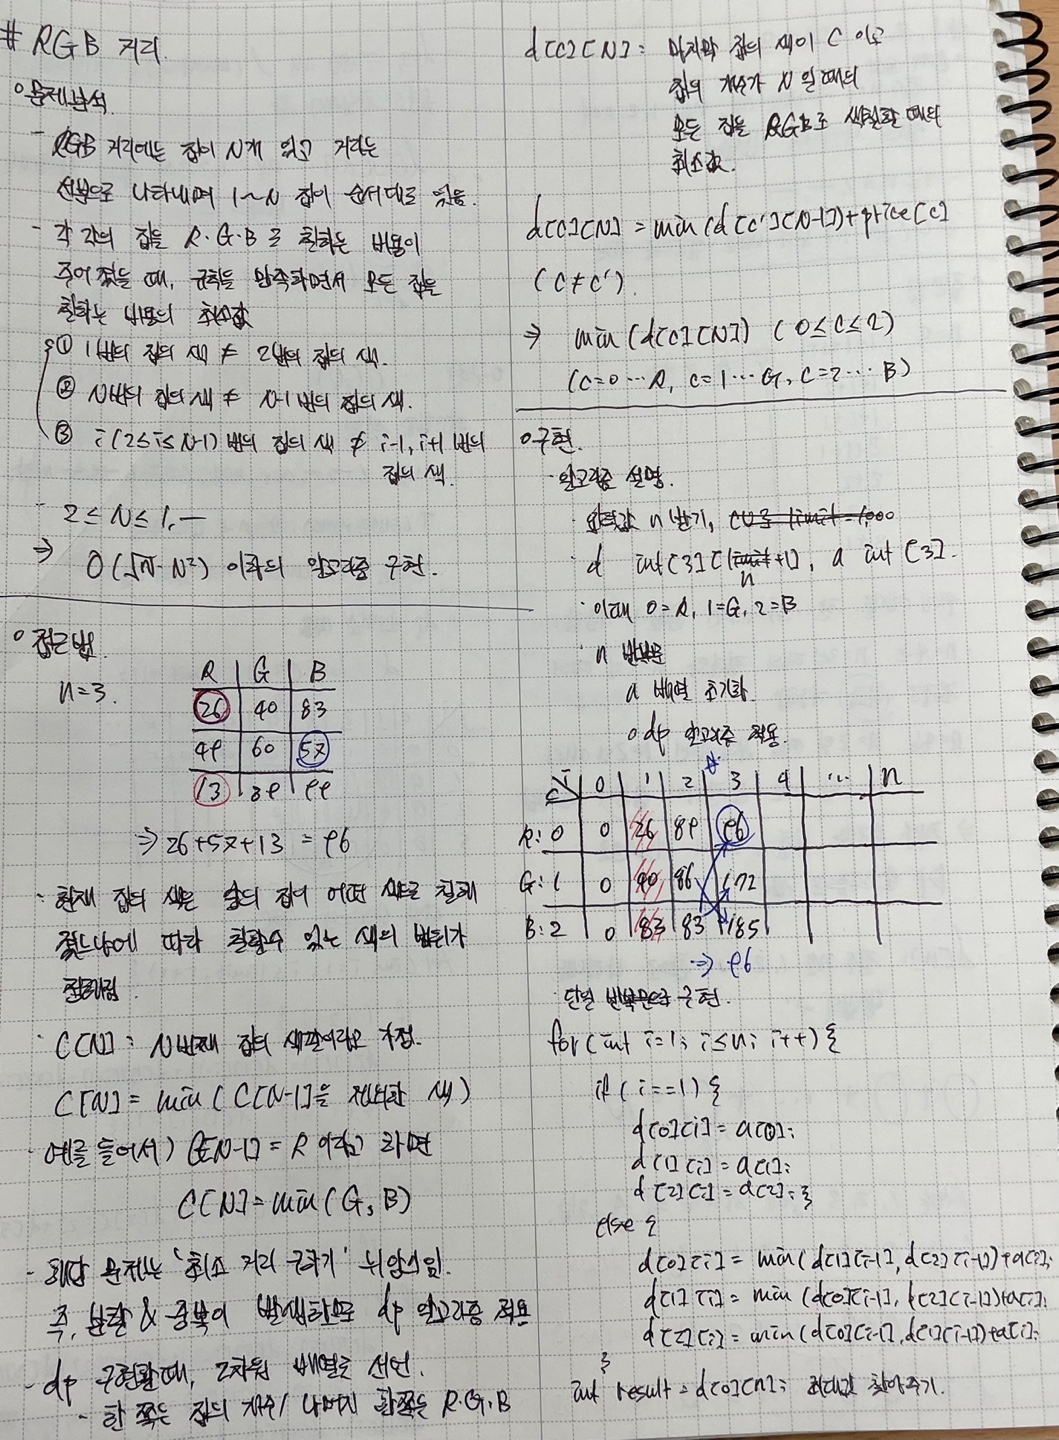 # RGB 거리
o 문제분석.
- RGB 거리에는 집이 N개 있고 거리는
선분으로 나타내며 1~N 집이 순서대로 있음.
- 각각의 집을 R·G·B로 칠하는 비용이
주어졌을 때, 규칙을 만족하면서 모든 집을
칠하는 비용의 최솟값
① 1번의 집의 색 ≠ 2번의 집의 색.
② N번의 집의 색 ≠ N-1번의 집의 색.
③ i(2≤i≤N-1)번의 집의 색 ≠ i-1, i+1 번의
집의 색.
- 2 ≤ N ≤ 1,—
⇒ O(√N · N²) 이하의 알고리즘 구현.
o 접근법.
n=3.
R G B
26 40 83
49 60 57
13 89 99
⇒ 26+57+13 = 96
· 현재 집의 색은 앞의 집이 어떤 색으로 칠해
졌느냐에 따라 칠할수 있는 색의 범위가
정해짐
· C[N] : N번째 집의 색깔이라고 가정.
C[N] = min ( C[N-1]을 제외한 색 )
· 예를 들어서) C[N-1] = R 이라고 하면
C[N] = min ( G, B )
- 해당 문제는 '최소 거리 구하기' 뉘앙스임.
즉, 분할 & 중복이 발생하므로 dp 알고리즘 적용
- dp 구현할때, 2차원 배열로 선언.
- 한 쪽은 집의 개수/ 나머지 한쪽은 R.G.B
d[C][N] : 마지막 집의 색이 C 이고
집의 개수가 N 일때의
모든 집을 RGB로 색칠할 때의
최소값.
d[C][N] = min (d[C'][N-1]) + price[C]
( C ≠ C' ).
⇒ min (d[C][N]) ( 0 ≤ C ≤ 2 )
(C=0 ··· R, C=1 ··· G, C=2 ··· B )
o 구현.
· 알고리즘 설명.
· 입력값 n 받기, limit = 1,000
· d int [3][limit+1], a int [3].
n
· 이때 0=R, 1=G, 2=B
· n 반복문
a 배열 초기화.
o dp 알고리즘 적용.
C 0 1 2 3 4 ... n
R: 0 0 26 89 96
G: 1 0 40 86 172
B: 2 0 83 83 185
⇒ 96
· 단일 반복문으로 구현.
for( int i=1; i≤n; i++) {
if ( i==1 ) {
d[0][i] = a[0];
d[1][i] = a[1];
d[2][i] = a[2]; }
else {
d[0][i] = min( d[1][i-1], d[2][i-1])+a[i];
d[1][i] = min (d[0][i-1], d[2][i-1])+a[i];
d[2][i] = min(d[0][i-1], d[1][i-1])+a[i];
}
int result = d[0][n]; 최대값 찾아주기.